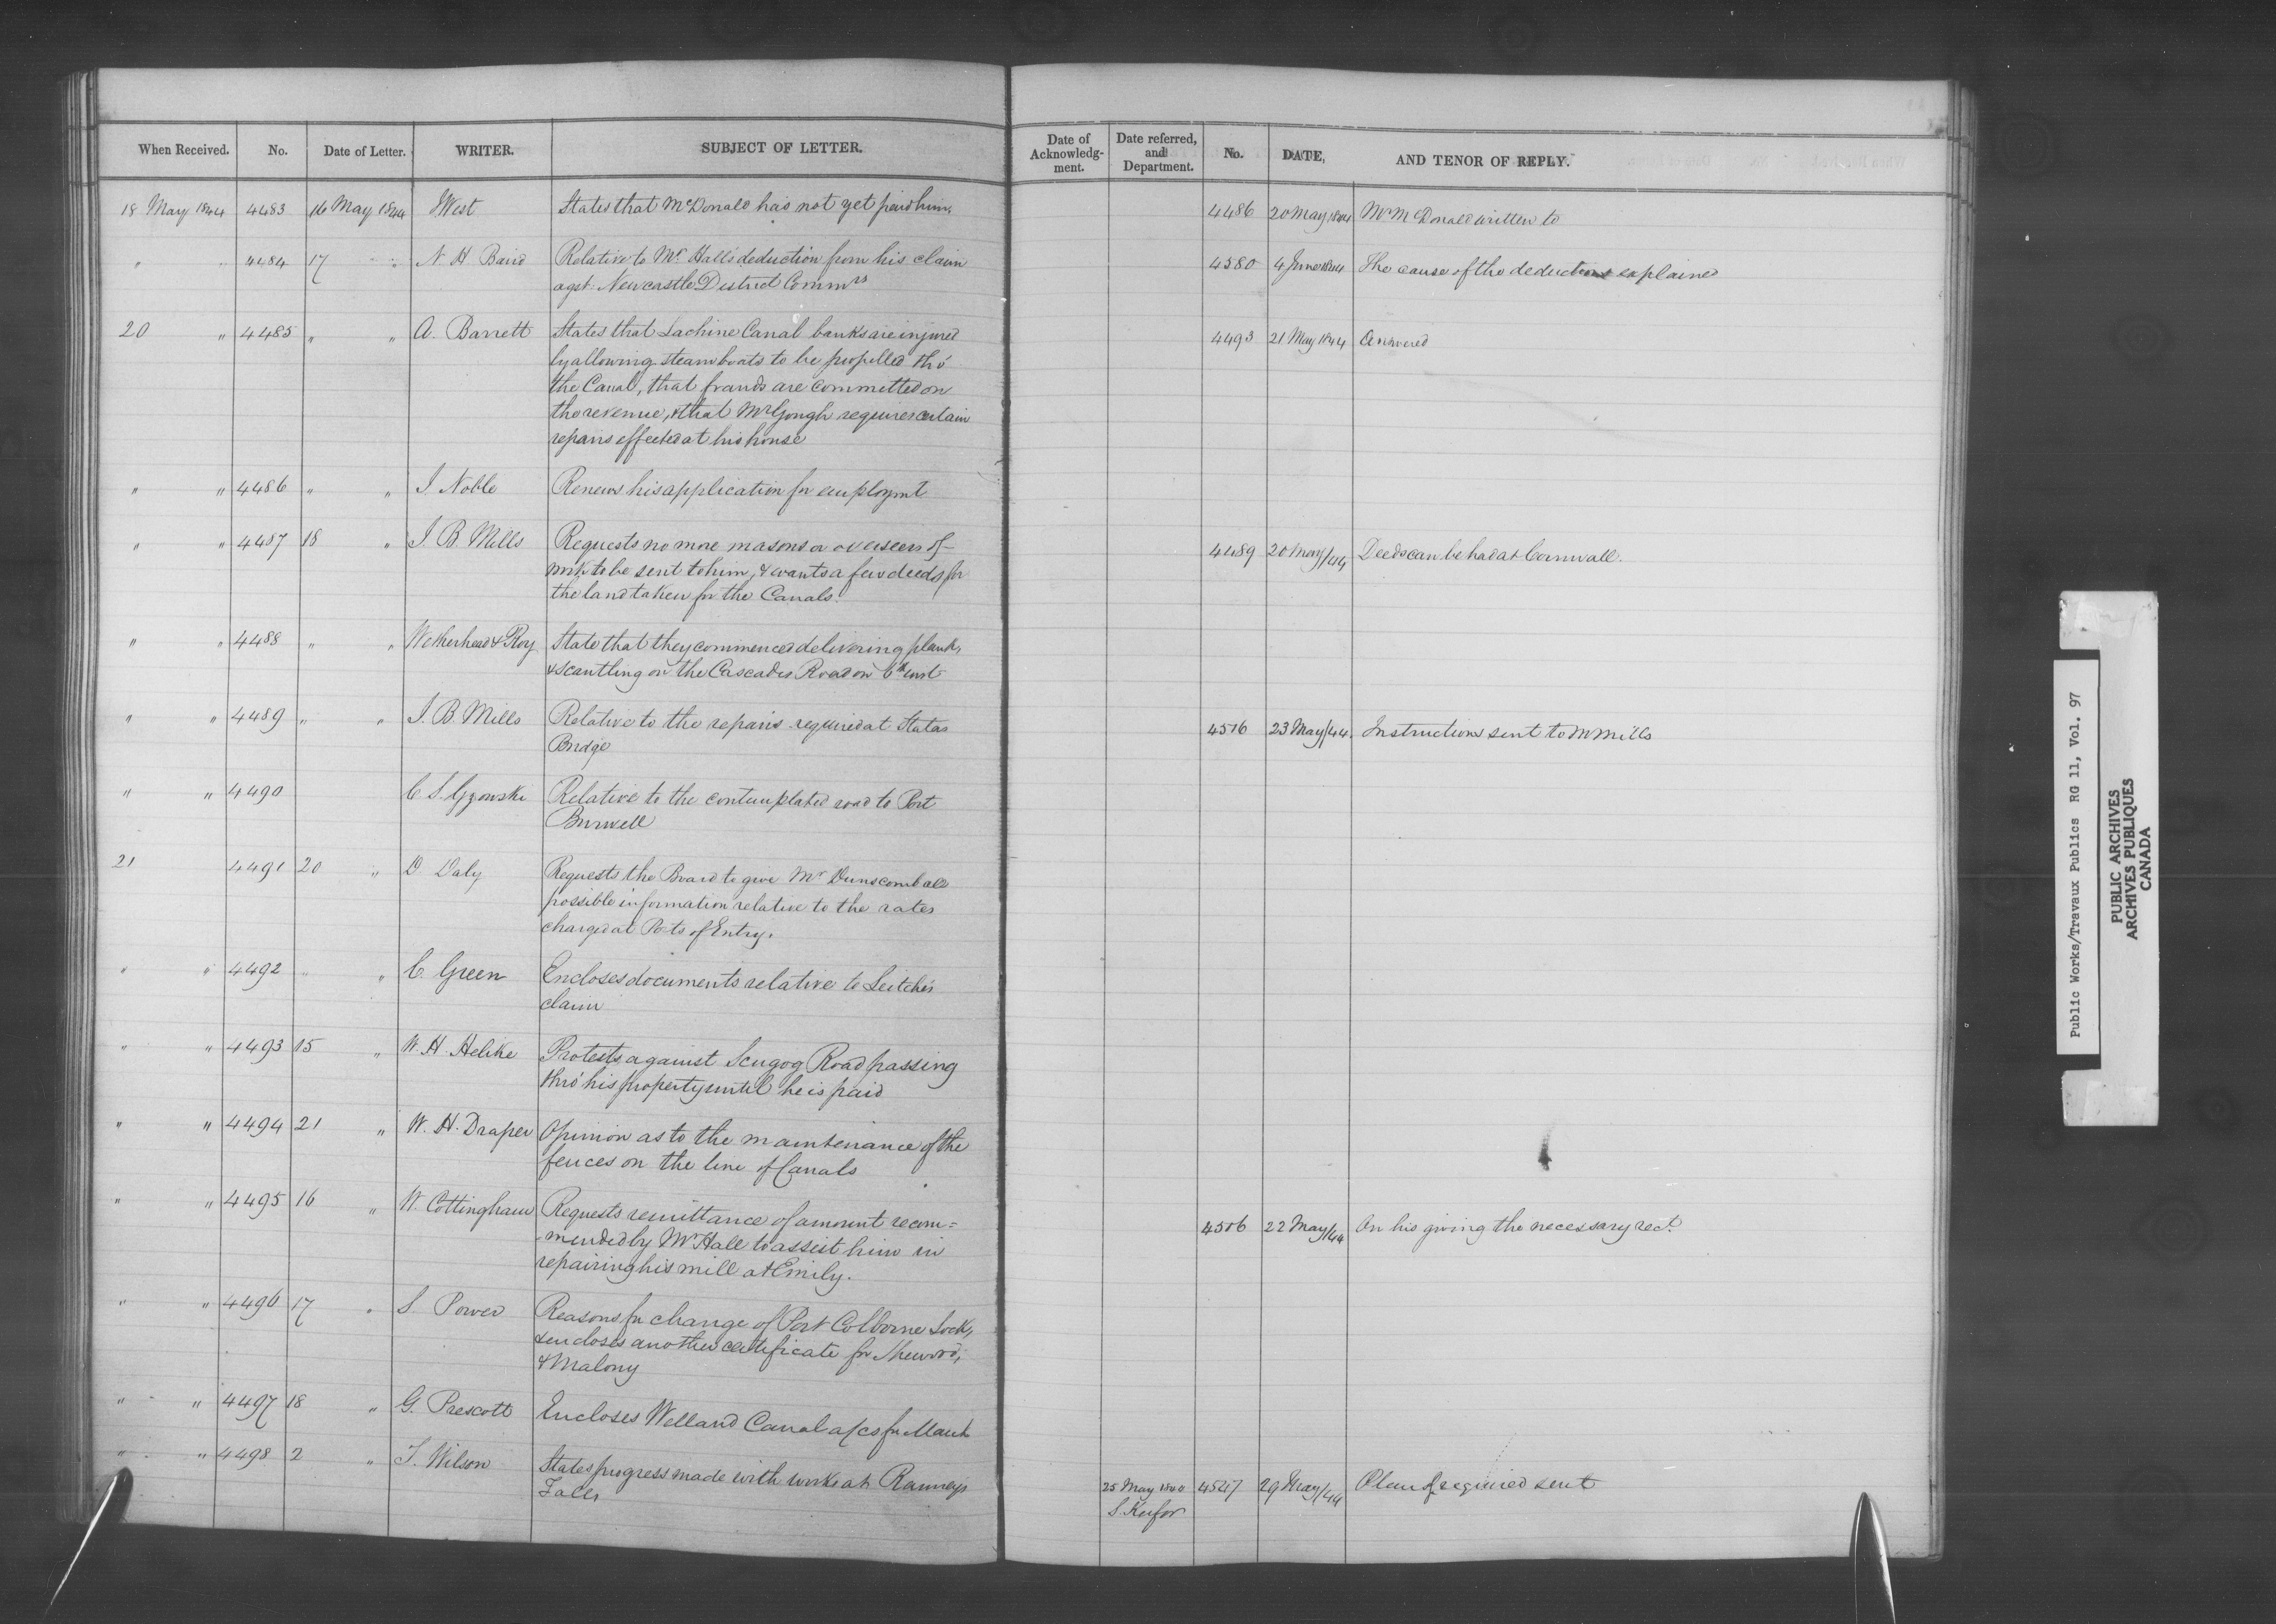 When Received. No. Date of Letter. WRITER. SUBJECT OF LETTER.
18 May 1844 4483 16 May 1844 J West States that McDonald has not yet paid him.
" " 4484 17 " N H Baird Relative to Mr Hall's deduction from his claim
agst Newcastle District Commrs
20 " 4485 " " A. Barrett States that Lachine Canal banks are injured
by allowing steam boats to be propelled thro'
the Canal, that frauds are committed on
the revenue, & that Mr Gough requires certain
repairs effected at his house
" " 4486 " " J Noble Renews his application for employmt
" " 4487 18 " J. B. Mills Requests no more masons or overseers of
wrk to be sent to him, & wants a few deeds for
the land taken for the Canals.
" " 4488 " " Wetherhead & Roy State that they commenced delivering plank,
& scantling on the Cascades Road on 6th inst
" " 4489 " " J. B. Mills Relative to the repairs required at
Bridge
" " 4490 C. S. Gzowski Relative to the contemplated road to Port
Burwell
21 4491 20 " D Daly Requests the Board to give Mr Dunscomb all
possible information relative to the rates
charged at Ports of Entry.
" " 4492 " " C. Green Encloses documents relative to Leitch's
claim
" " 4493 15 " W. H. Protests against Scugog Road passing
thro' his property until he is paid
" " 4494 21 " W. H. Draper Opinion as to the maintenance of the
fences on the line of Canals
" " 4495 16 " W. Cottingham Requests remittance of amount recom=
=mended by Mr Hall to assist him in
repairing his mill at Emily.
" " 4496 17 " S Power Reasons for change of Port Colborne Lock,
& encloses another certificate for
& Malony
" " 4497 18 " G. Prescott Encloses Welland Canal a/cs for March
" " 4498 2 " T. Wilson States progress made with works at Ranneys
Falls
Date of Acknowledg-ment. Date referred, and Department. No. DATE, AND TENOR OF REPLY.
4486 20 May 1844 Mr McDonald written to
4580 4 June 1844 The cause of the deductions explained
4493 21 May 1844 Answered
4489 20 May/44 Deeds can be had at Cornwall.
4516 23 May/44. Instructions sent to Mr Mills
4506 22 May/44 On his giving the necessary rect.
25 May 1844 4547 29 May/44 Plans required sent
S. Keefer
Public Works/Travaux Publics RG 11, Vol. 97
PUBLIC ARCHIVES
ARCHIVES PUBLIQUES
CANADA